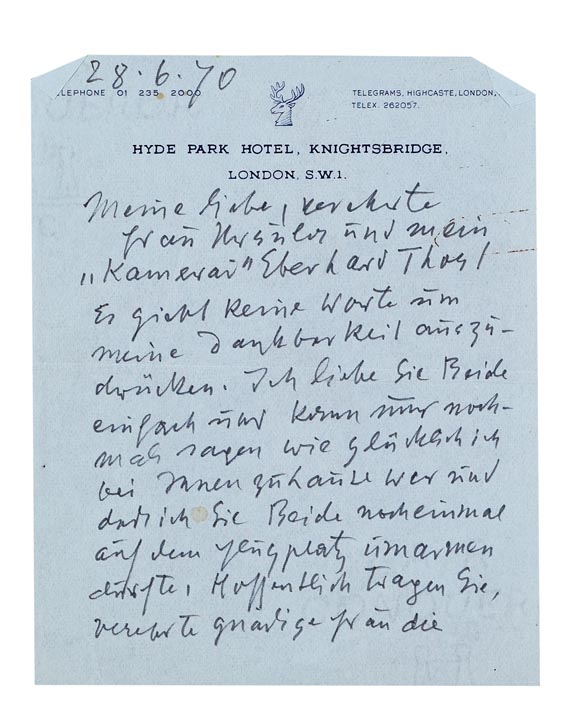 28.6.70
TELEPHONE 01 235 2000
TELEGRAMS, HIGHCASTE, LONDON,
TELEX. 262057.
HYDE PARK HOTEL, KNIGHTSBRIDGE,
LONDON, S.W.1.
Meine liebe, verehrte
Frau Ursula und mein
„Kamerad" Eberhard Thost!
Es giebt keine Worte um
meine Dankbarkeit auszu-
drücken. Ich liebe Sie Beide
einfach und kann nur noch-
mals sagen wie glücklich ich
bei Ihnen zuhause war und
dass ich Sie Beide nocheinmal
auf dem Flugplatz umarmen
durfte. Hoffentlich tragen Sie,
verehrte gnädige Frau die